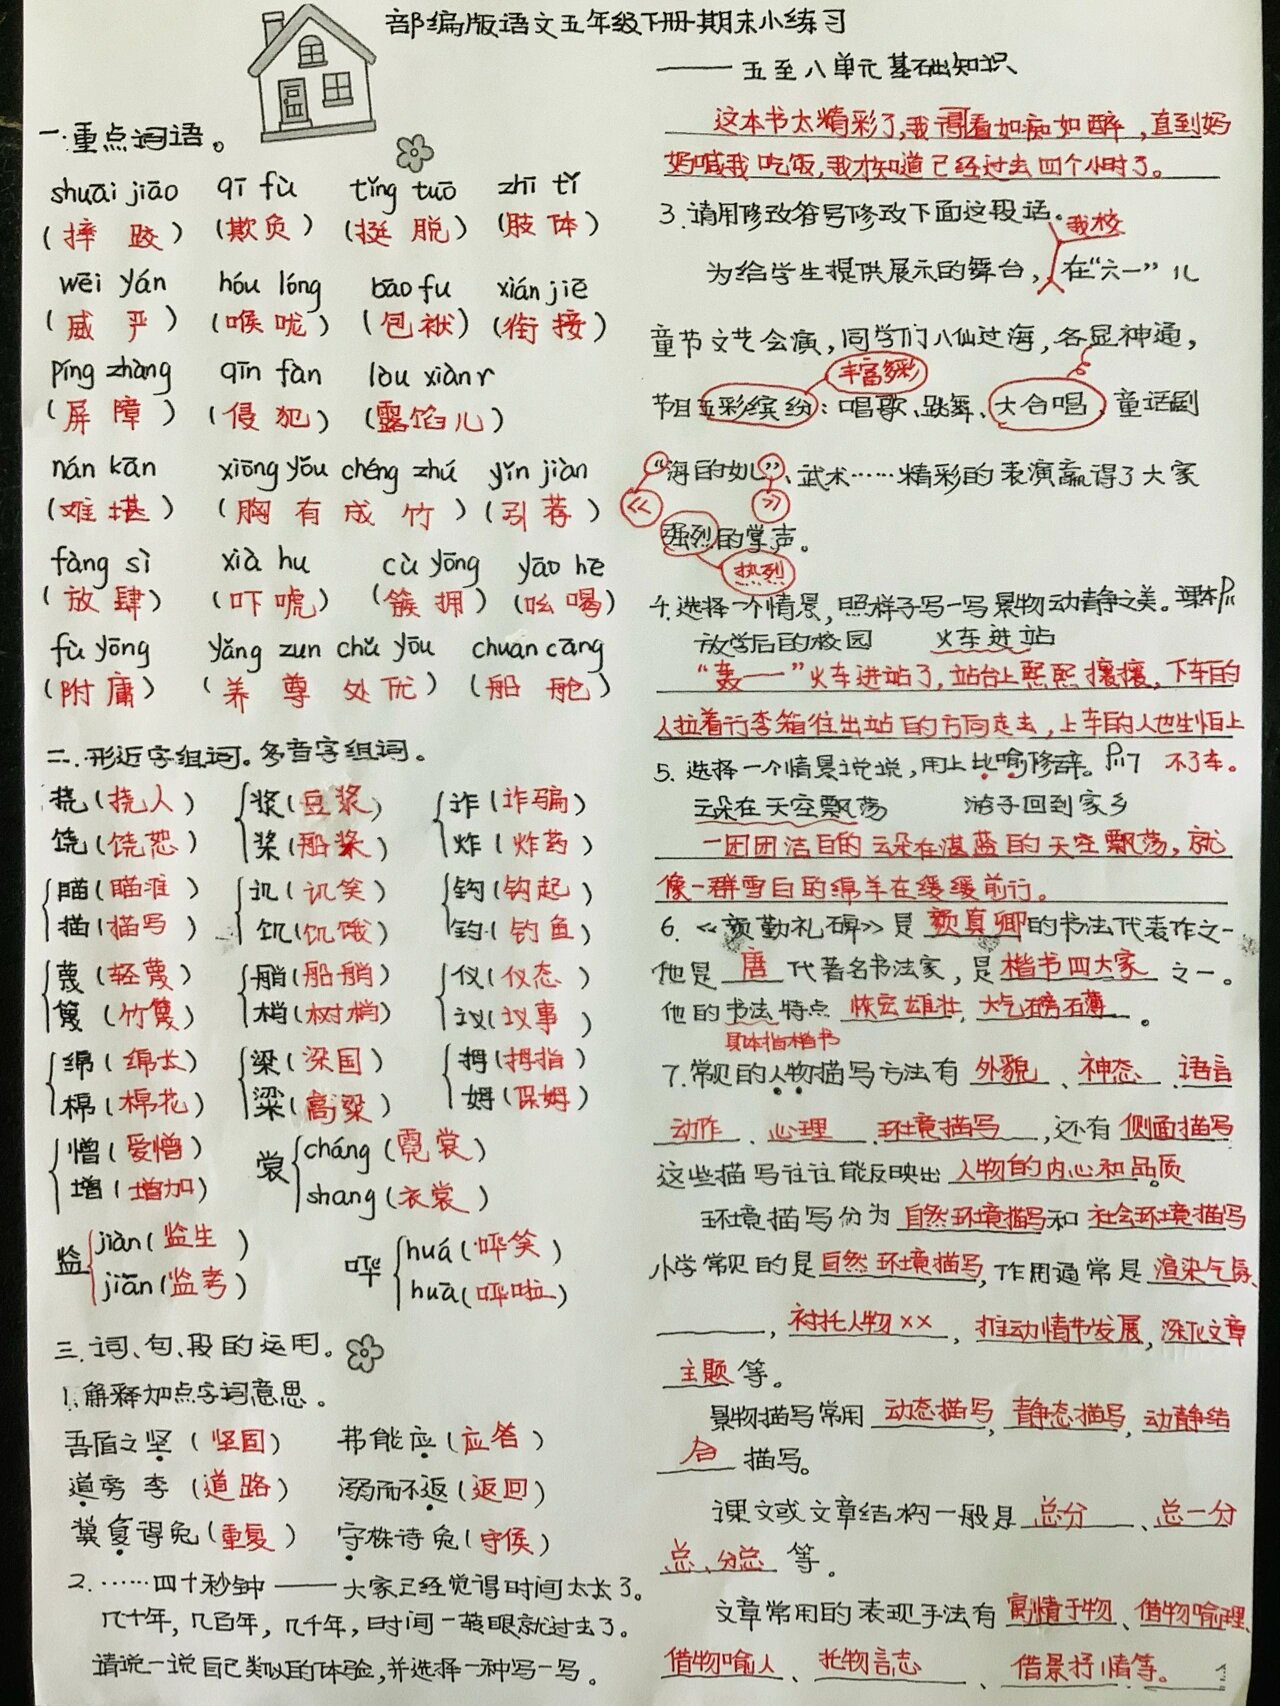 部编版语文五年级下册期末小练习
——五至八单元基础知识
一.重点词语。
shuāi jiāo qī fù tǐng tuō zhī tǐ
(摔跤) (欺负) (挺脱) (肢体)
wēi yán hóu lóng bāo fu xián jiē
(威严) (喉咙) (包袱) (衔接)
píng zhàng qīn fàn lòu xiànr
(屏障) (侵犯) (露馅儿)
nán kān xiōng yǒu chéng zhú yǐn jiàn
(难堪) (胸有成竹) (引荐)
fàng sì xià hu cù yōng yāo hē
(放肆) (吓唬) (簇拥) (吆喝)
fù yōng yǎng zun chǔ yōu chuán cāng
(附庸) (养尊处优) (船舱)
二.形近字组词。多音字组词。
挠(挠人) 浆(豆浆) 诈(诈骗)
饶(饶恕) 桨(船桨) 炸(炸药)
瞄(瞄准) 讥(讥笑) 钩(钩起)
描(描写) 饥(饥饿) 钓(钓鱼)
蔑(轻蔑) 艄(船艄) 仪(仪态)
篾(竹篾) 梢(树梢) 议(议事)
绵(绵长) 梁(梁国) 拇(拇指)
棉(棉花) 粱(高粱) 姆(保姆)
憎(爱憎) 裳 cháng (霓裳)
增(增加) shang (衣裳)
监 jiàn(监生) 哗 huá(哗笑)
jiān(监考) huā(哗啦)
三.词、句、段的运用。
1.解释加点字词意思。
吾盾之坚(坚固) 弗能应(应答)
道旁李(道路) 溺而不返(返回)
冀复得兔(重复) 守株待兔(守侯)
2.……四十秒钟——大家已经觉得时间太长了。
几十年,几百年,几千年,时间一转眼就过去了。
请说一说自己类似的体验,并选择一种写一写。
这本书太精彩了,我得看如痴如醉,直到妈
妈喊我吃饭,我才知道已经过去四个小时了。
3.请用修改符号修改下面这段话。
我校
为给学生提供展示的舞台,在“六一”儿
童节文艺会演,同学们八仙过海,各显神通,
丰富多彩
节目五彩缤纷:唱歌、跳舞、大合唱、童话剧
“海的女儿”、武术……精彩的表演赢得了大家
《 》
强烈的掌声。
热烈
4.选择一个情景,照样子写一写景物动静之美。课本P11
放学后的校园 火车进站
“轰——”火车进站了,站台上熙熙攘攘,下车的
人拉着行李箱往出站的方向走去,上车的人也生怕上
5.选择一个情景说说,用上比喻修辞。P117 不了车。
云朵在天空飘荡 游子回到家乡
一团团洁白的云朵在湛蓝的天空飘荡,就
像一群雪白的绵羊在缓缓前行。
6.《颜勤礼碑》是颜真卿的书法代表作之一
他是唐代著名书法家,是楷书四大家之一。
他的书法特点恢宏雄壮,大气磅礴。
具体指楷书
7.常见的人物描写方法有外貌、神态、语言
动作、心理、环境描写,还有侧面描写
这些描写往往能反映出人物的内心和品质。
环境描写份为自然环境描写和社会环境描写
小学常见的是自然环境描写,作用通常是渲染气氛、
,衬托人物××,推动情节发展,深化文章
主题等。
景物描写常用动态描写,静态描写,动静结
合描写。
课文或文章结构一般是总分、总一分
总、分总等。
文章常用的表现手法有寓情于物、借物喻理、
借物喻人、托物言志、借景抒情等。
1